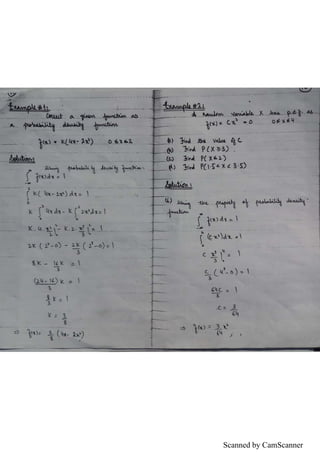 Example #1:
Correct a given function as
a probability density function
f(x) = K(4x - 2x²) 0 ≤ x ≤ 2
Solution:
Using probability density function.
∫ f(x) dx = 1
∫ K( 4x - 2x²) dx = 1
K ∫ 4x dx - K ∫ 2x² dx = 1
K. 4 x²/2 | - K. 2. x³/3 | = 1
2K (2² - 0) - 2K/3 (2³ - 0) = 1
8K - 16/3 K = 1
(24 - 16)/3 K = 1
8/3 K = 1
K = 3/8
⇒ f(x) = 3/8 (4x - 2x²)
Example #2:
A Random variable X has p.d.f. as
f(x) = C x² = 0 0 ≤ x ≤ 4
Find the value of C
Find P(X ≥ 3)
Find P(X ≤ 2)
Find P(1.5 < X < 3.5)
Solution:
Using the property of probability density
function
∫ f(x) dx = 1
∫ (Cx²) dx = 1
C x³/3 |⁴₀ = 1
C/3 (4³ - 0) = 1
64C/3 = 1
C = 3/64
⇒ f(x) = 3/64 x²
Scanned by CamScanner